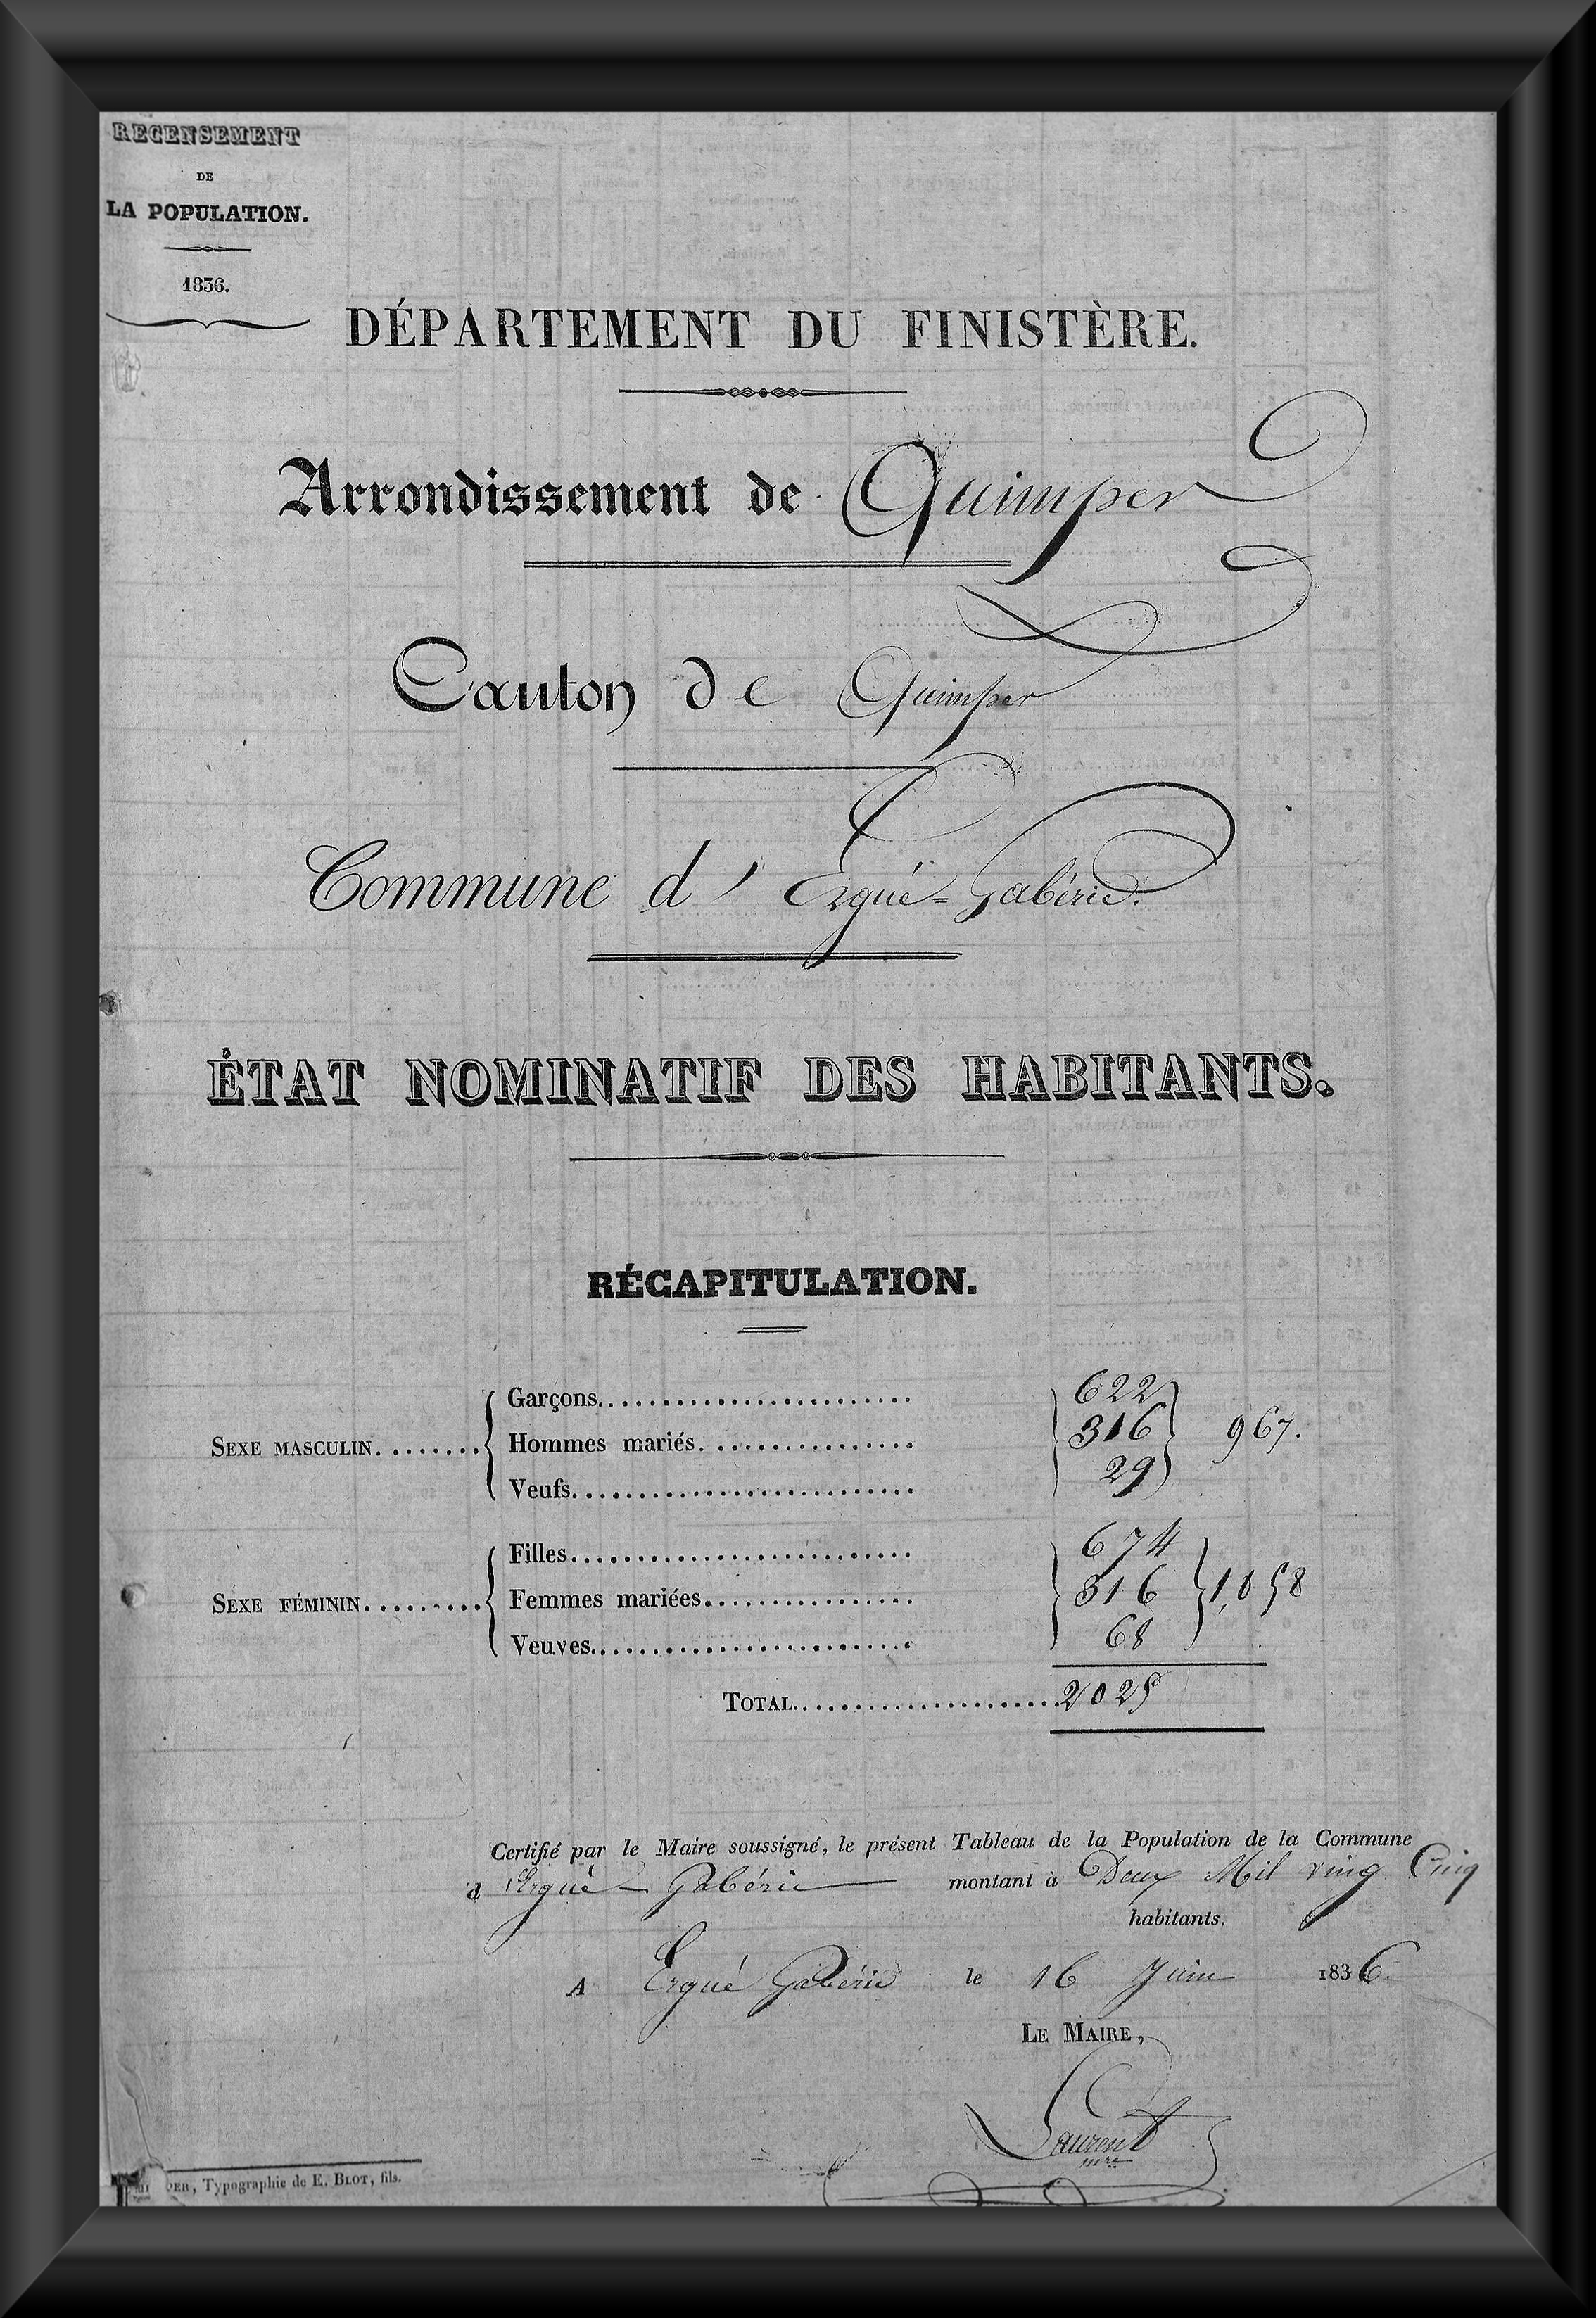 RECENSEMENT
DE
LA POPULATION.
1836.
DÉPARTEMENT DU FINISTÈRE.
Arrondissement de Quimper
Canton de Quimper
Commune d' Ergué-Gabéric.
ÉTAT NOMINATIF DES HABITANTS.
RÉCAPITULATION.
SEXE MASCULIN
Garçons 622
Hommes mariés 316
Veufs 29
967.
SEXE FÉMININ
Filles 674
Femmes mariées 316
Veuves 68
1,058
TOTAL 2025
Certifié par le Maire soussigné, le présent Tableau de la Population de la Commune
d Ergué-Gabéric montant à Deux Mil ving Cinq
habitants.
A Ergué Gabéric le 16 Juin 1836.
LE MAIRE,
Laurent
mre
PER, Typographie de E. BLOT, fils.